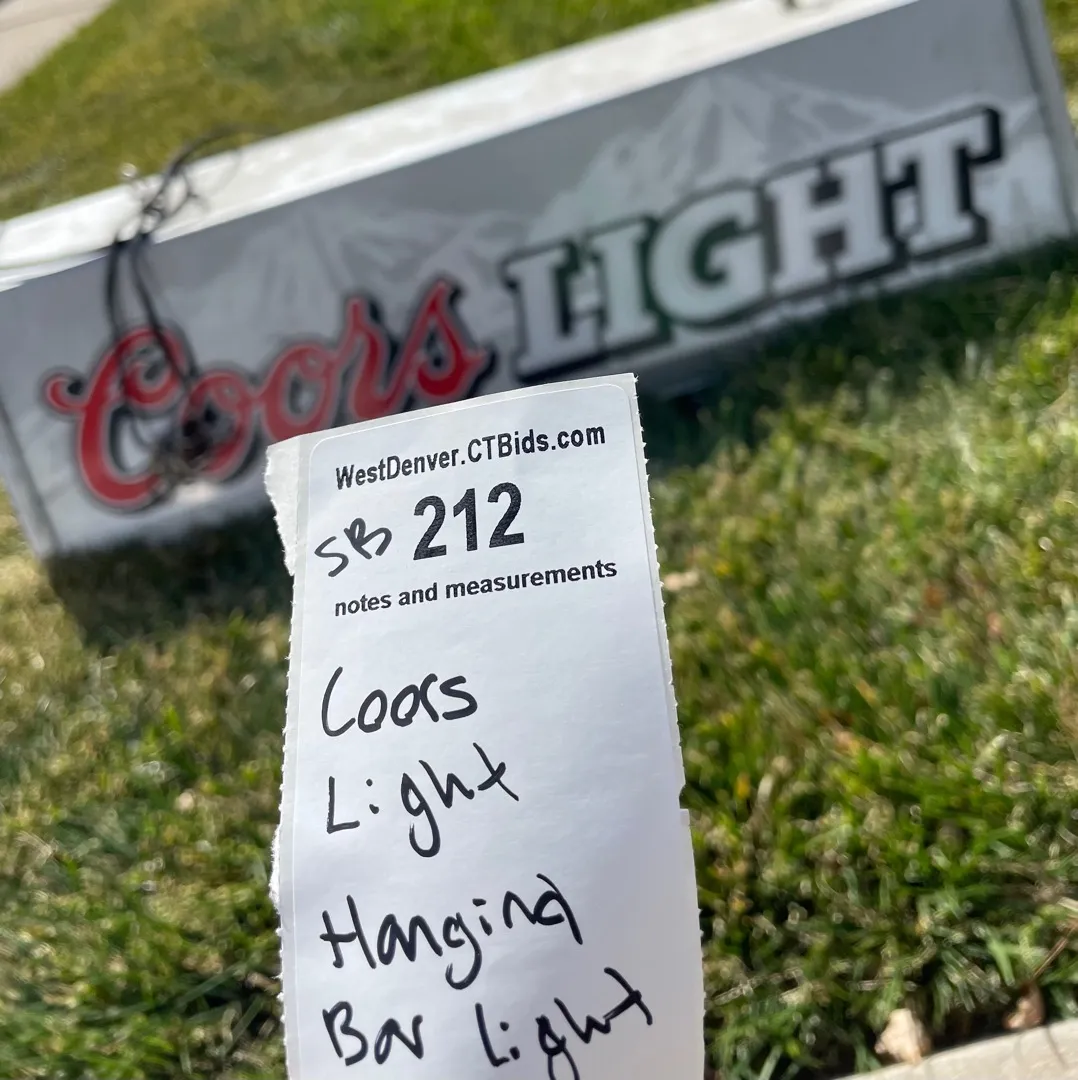 Coors LIGHT
WestDenver.CTBids.com
SB 212
notes and measurements
Coors
Light
Hanging
Bar Light